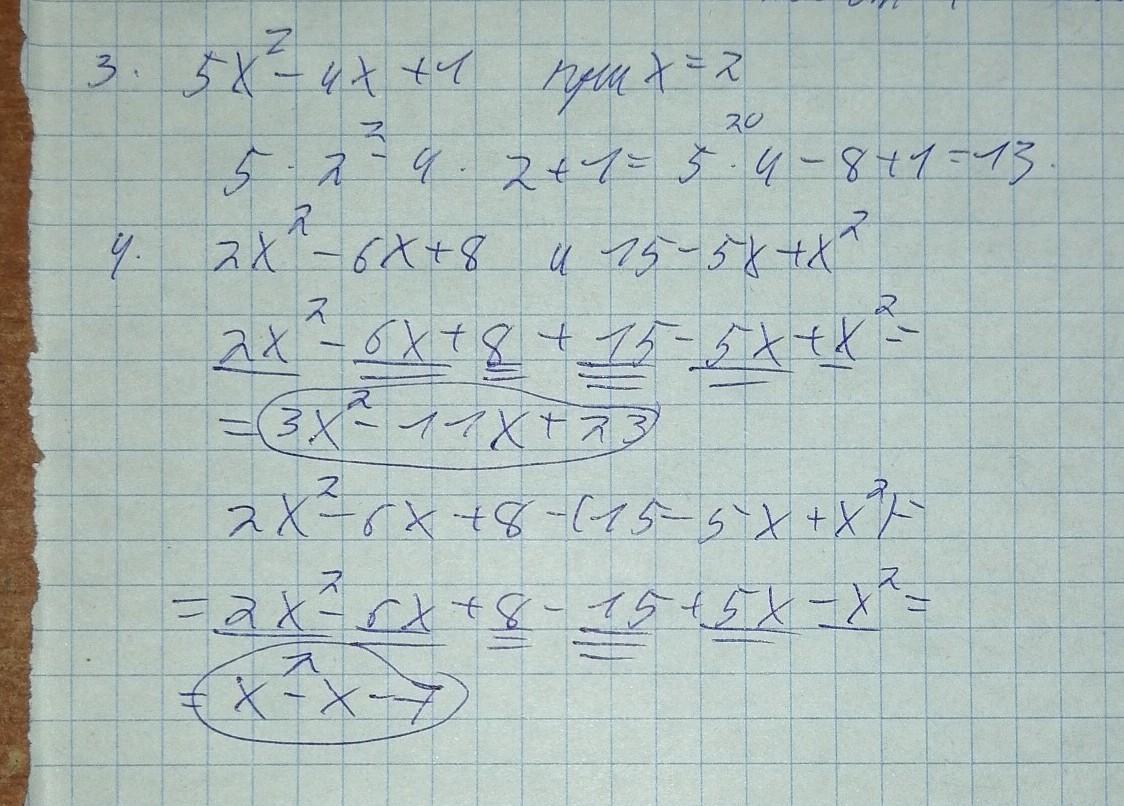 3. 5x² - 4x + 1 при x = 2
20
5 · 2² - 4 · 2 + 1 = 5 · 4 - 8 + 1 = 13.
4. 2x² - 6x + 8 и 15 - 5x + x²
2x² - 6x + 8 + 15 - 5x + x² =
= 3x² - 11x + 23
2x² - 6x + 8 - (15 - 5x + x²) =
= 2x² - 6x + 8 - 15 + 5x - x² =
= x² - x - 7